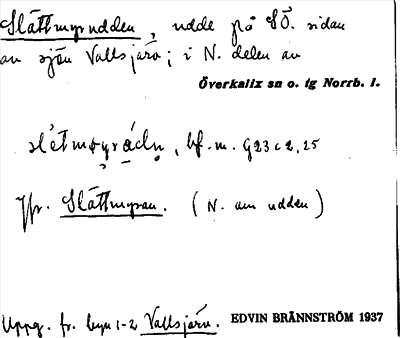 Slåttmyrudden, udde på SÖ. sidan
av sjön Vallsjärv; i N. delen av
Överkalix sn o. tg Norrb. l.
slåtmyrådn, bf. m. G23 c 2, 25
Jfr. Slåttmyran. (N. om udden)
Uppg. fr. byn 1-2 Vallsjärv. EDVIN BRÄNNSTRÖM 1937